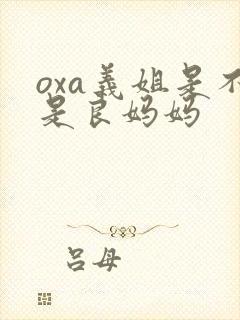 oxa義姐是不
是良妈妈
吕母